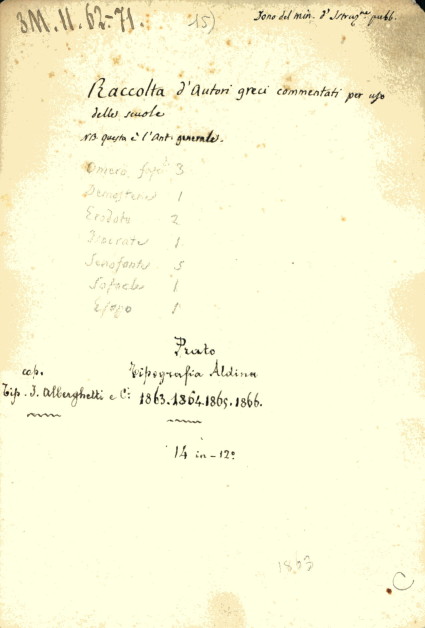 3M.11.62-71.
15)
Dono del min. d'Istruzne pubb.
Raccolta d'Autori greci commentati per uso
delle scuole
NB questa è l'Ant. generale.
Omero 3
Demostene 1
Erodoto 2
Isocrate 1
Senofonte 5
Sofocle 1
Esopo 1
Prato
cop. Tipografia Aldina
Tip. I. Alberghetti e C.i 1863.1864.1865.1866.
14 in-12º
1863
C